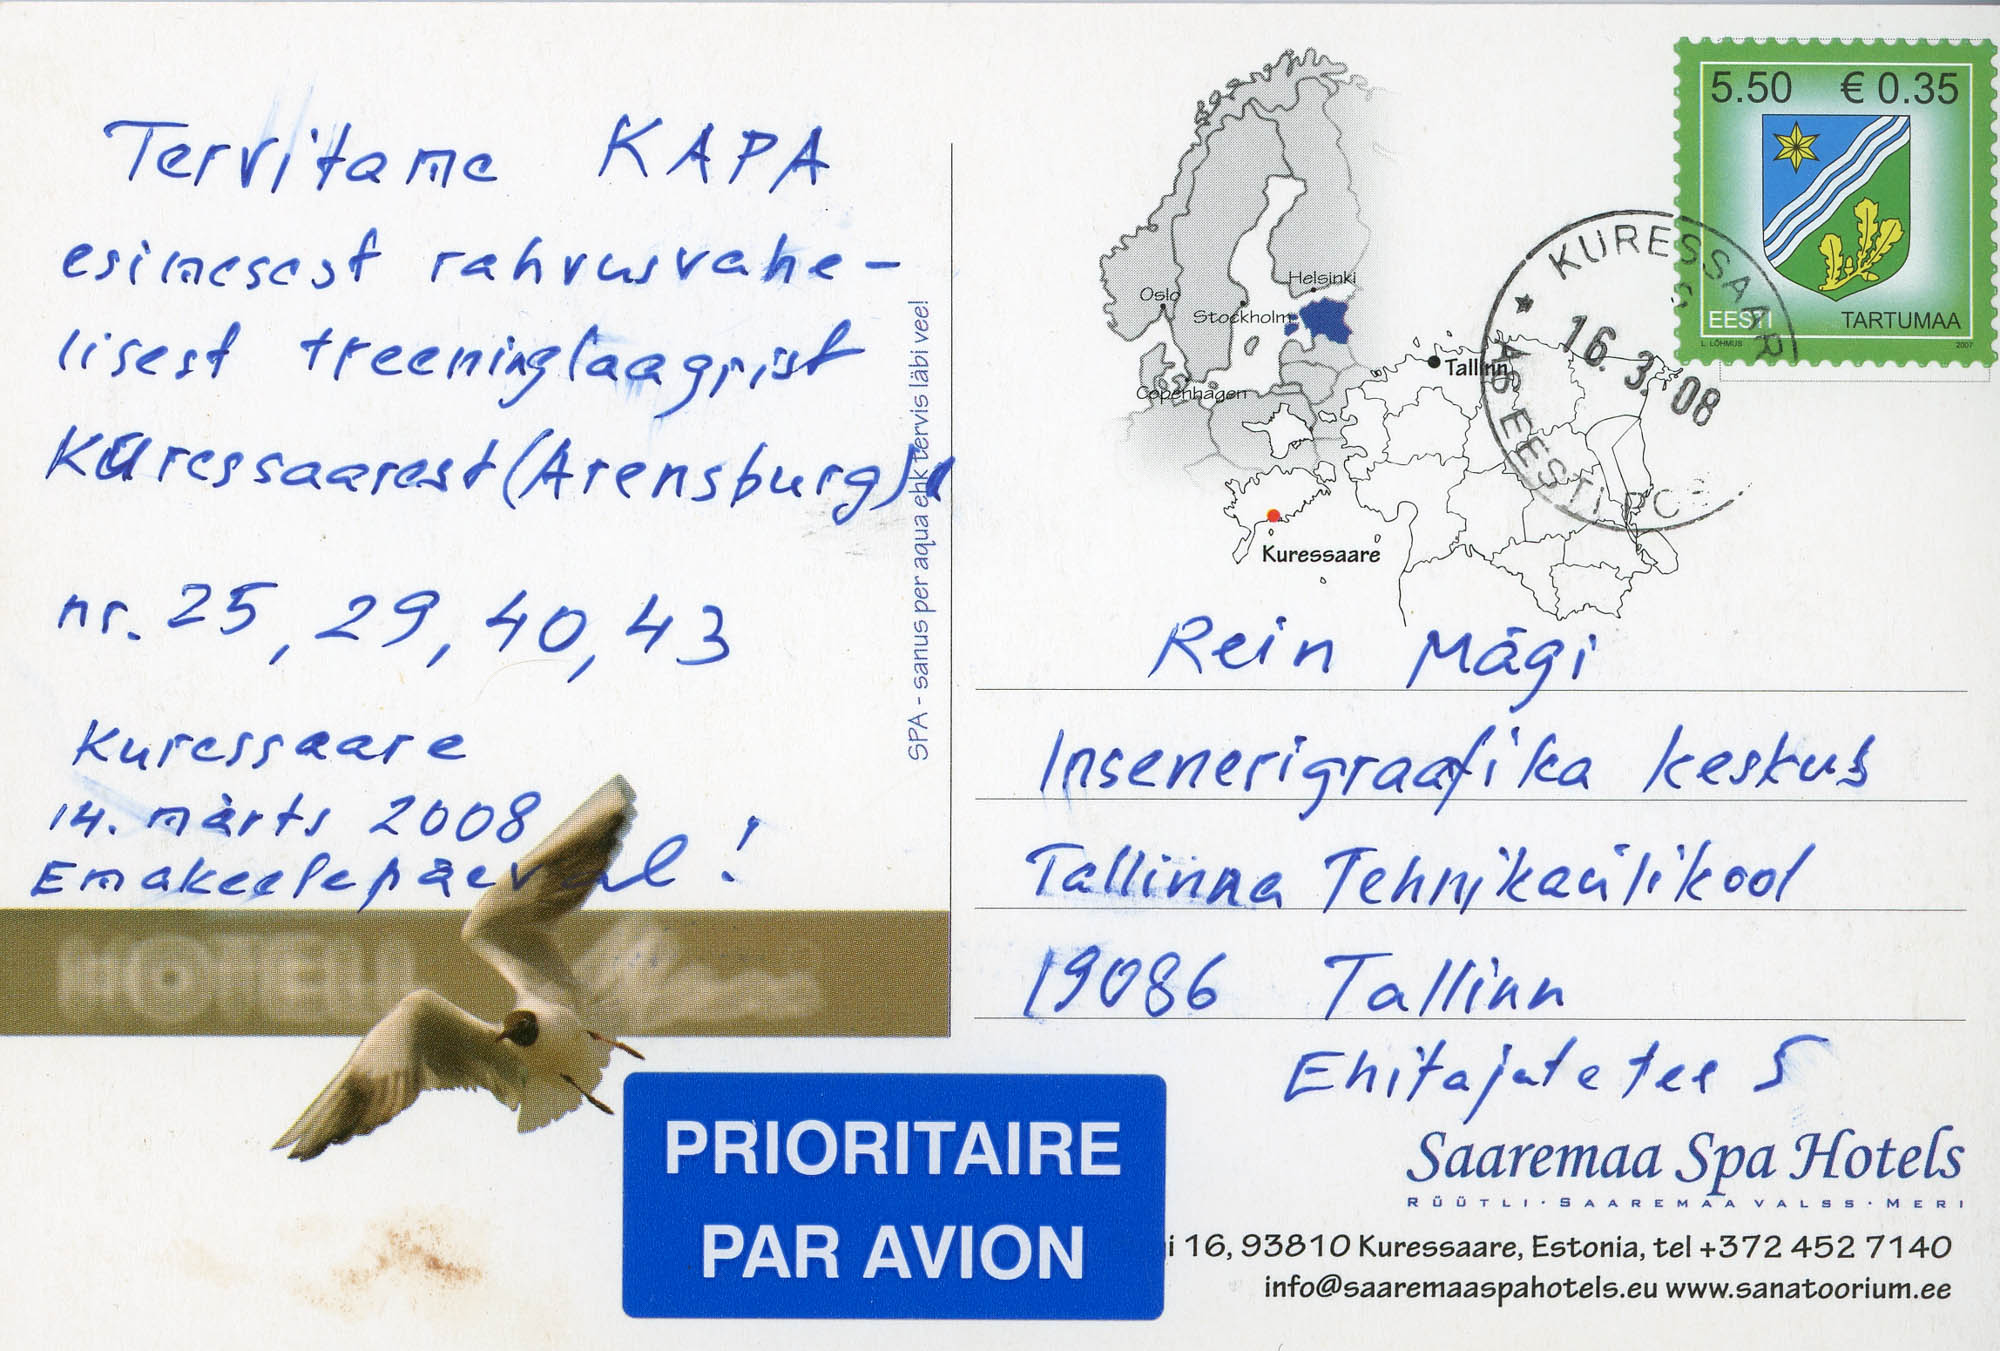 Tervitame KAPA
esimesest rahvusvahe-
lisest treeninglaagrist
Kuressaarest (Arensburg)!
nr. 25, 29, 40, 43
Kuressaare
14. märts 2008
Emakeelepäeval!
SPA - sanus per aqua ehk tervis läbi vee!
Oslo
Helsinki
Stockholm
Copenhagen
Tallinn
Kuressaare
5.50 € 0.35
EESTI TARTUMAA
L. LÕHMUS 2007
KURESSAARE
16. 3. 08
AS EESTI POST
Rein Mägi
Insenerigraafika keskus
Tallinna Tehnikaülikool
19086 Tallinn
Ehitajate tee 5
HOTELL
PRIORITAIRE
PAR AVION
Saaremaa Spa Hotels
RÜÜTLI · SAAREMAA VALSS · MERI
i 16, 93810 Kuressaare, Estonia, tel +372 452 7140
info@saaremaaspahotels.eu www.sanatoorium.ee